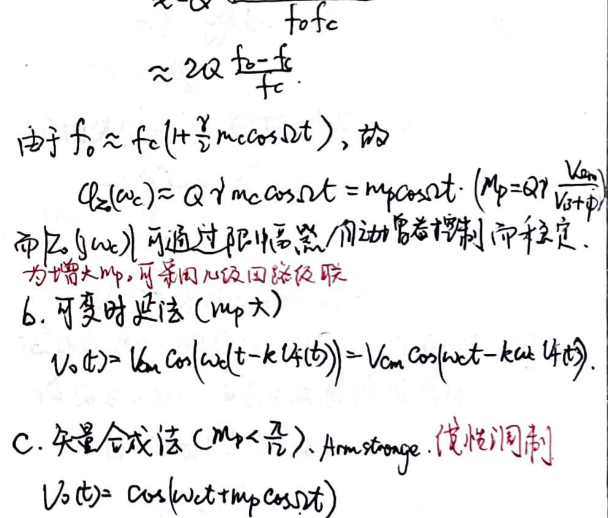 f₀fc
≈ 2Q (f₀-fc)/fc.
由于 f₀ ≈ fc(1+γ/2 mc cosΩt), 故
φz(ωc) ≈ Qγ mc cosΩt = mp cosΩt. (Mp=Qγ VΩm/(VB+φ))
而|Z₀(jωc)| 可通过限幅器/自动增益控制而稳定.
为增大mp, 可采用几级回路级联
b. 可变时延法 (mp大)
V₀(t)= Vcm cos(ωc(t-kVf(t)))=Vcm cos(ωct-kωcVf(t)).
C. 矢量合成法 (Mp<π/12). Armstronge. 线性调制
V₀(t)= cos(ωct+mp cosΩt)